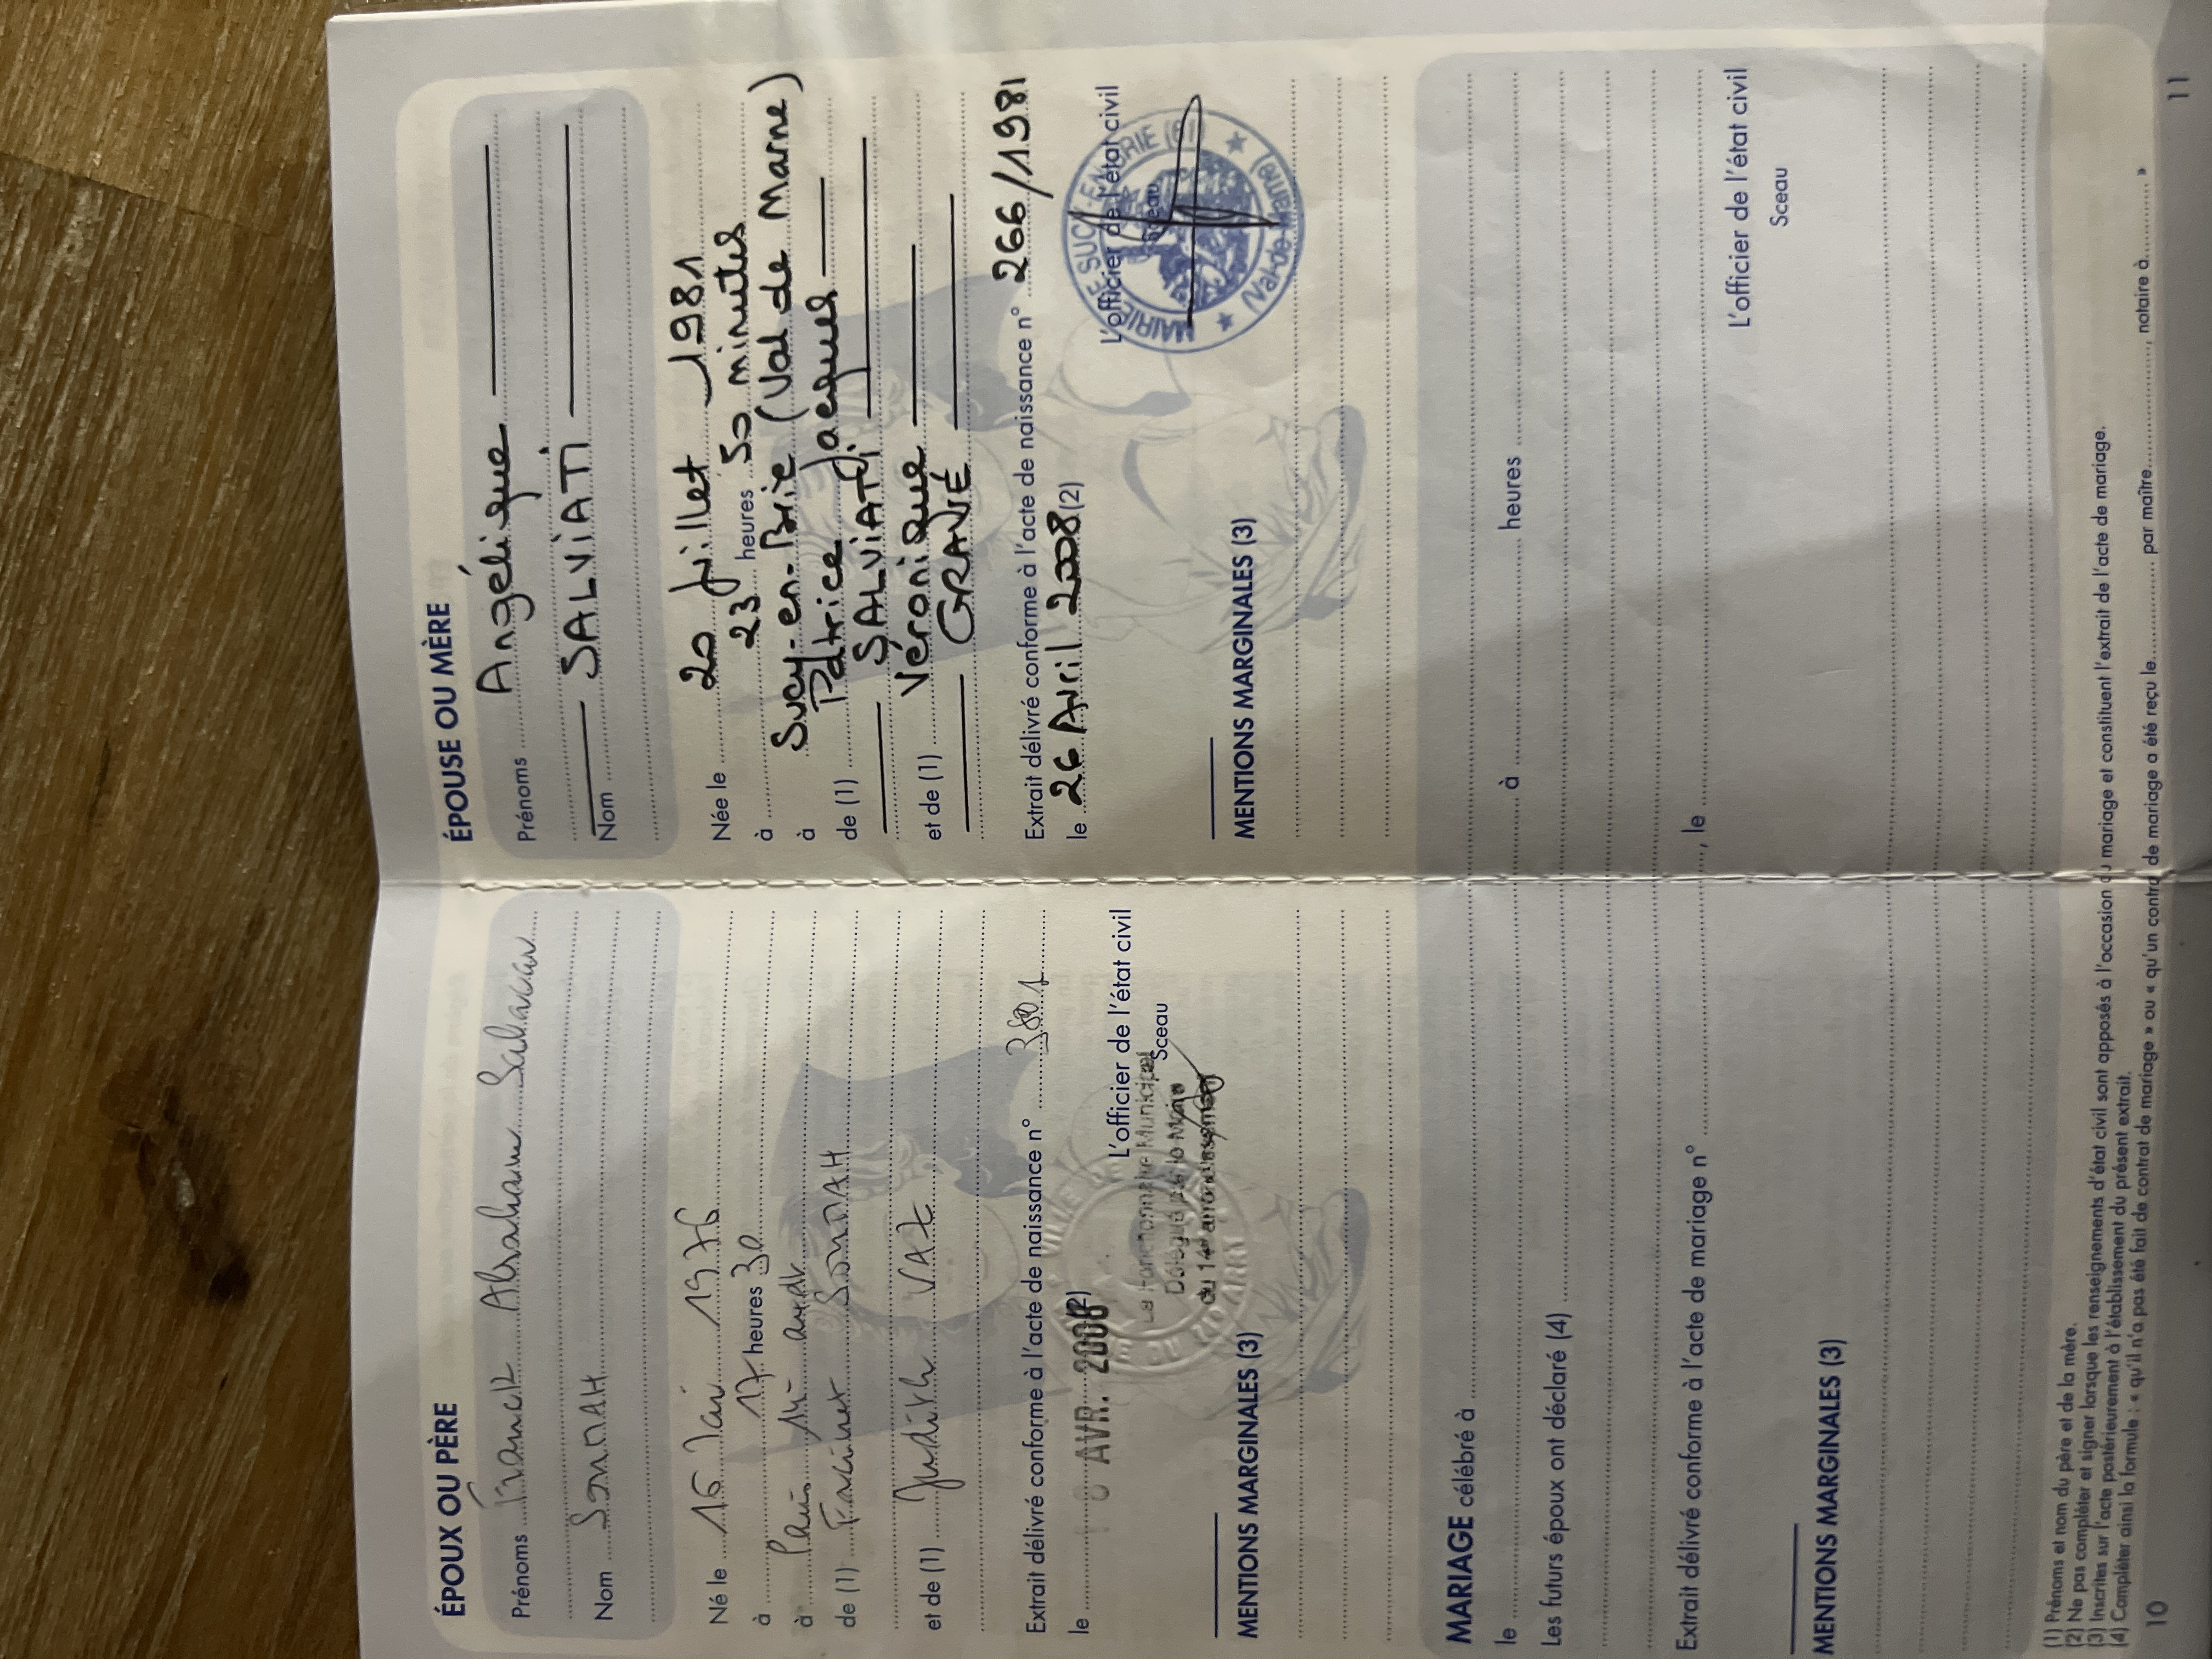 ÉPOUX OU PÈRE
Prénoms Franck Abraham
Nom SONDAH
Né le 16 1976
à 17 heures 30
à Paris 14e arrdt
de (1) SONDAH
et de (1) Judith VAZ
Extrait délivré conforme à l'acte de naissance n° 3801
le AVR. 2008 (2)
L'officier de l'état civil
Sceau
Le Fonctionnaire Municipal
Délégué par le Maire
du 14e arrondissement
MENTIONS MARGINALES (3)
ÉPOUSE OU MÈRE
Prénoms Angélique
Nom SALVIATI
Née le 20 juillet 1981
à 23 heures 50 minutes
à Sucy-en-Brie (Val de Marne)
de (1) Patrice Jacques
SALVIATI
et de (1) Véronique
GRANIÉ
Extrait délivré conforme à l'acte de naissance n° 266/1981
le 26 Avril 2008 (2)
L'officier de l'état civil
Sceau
MAIRIE DE SUCY-EN-BRIE
(Val-de-Marne)
MENTIONS MARGINALES (3)
MARIAGE célébré à
le à heures
Les futurs époux ont déclaré (4)
Extrait délivré conforme à l'acte de mariage n° , le
L'officier de l'état civil
Sceau
MENTIONS MARGINALES (3)
(1) Prénoms et nom du père et de la mère.
(2) Ne pas compléter et signer lorsque les renseignements d'état civil sont apposés à l'occasion du mariage et constituent l'extrait de l'acte de mariage.
(3) Inscrites sur l'acte postérieurement à l'établissement du présent extrait.
(4) Compléter ainsi la formule : « qu'il n'a pas été fait de contrat de mariage » ou « qu'un contrat de mariage a été reçu le par maître , notaire à »
10
11